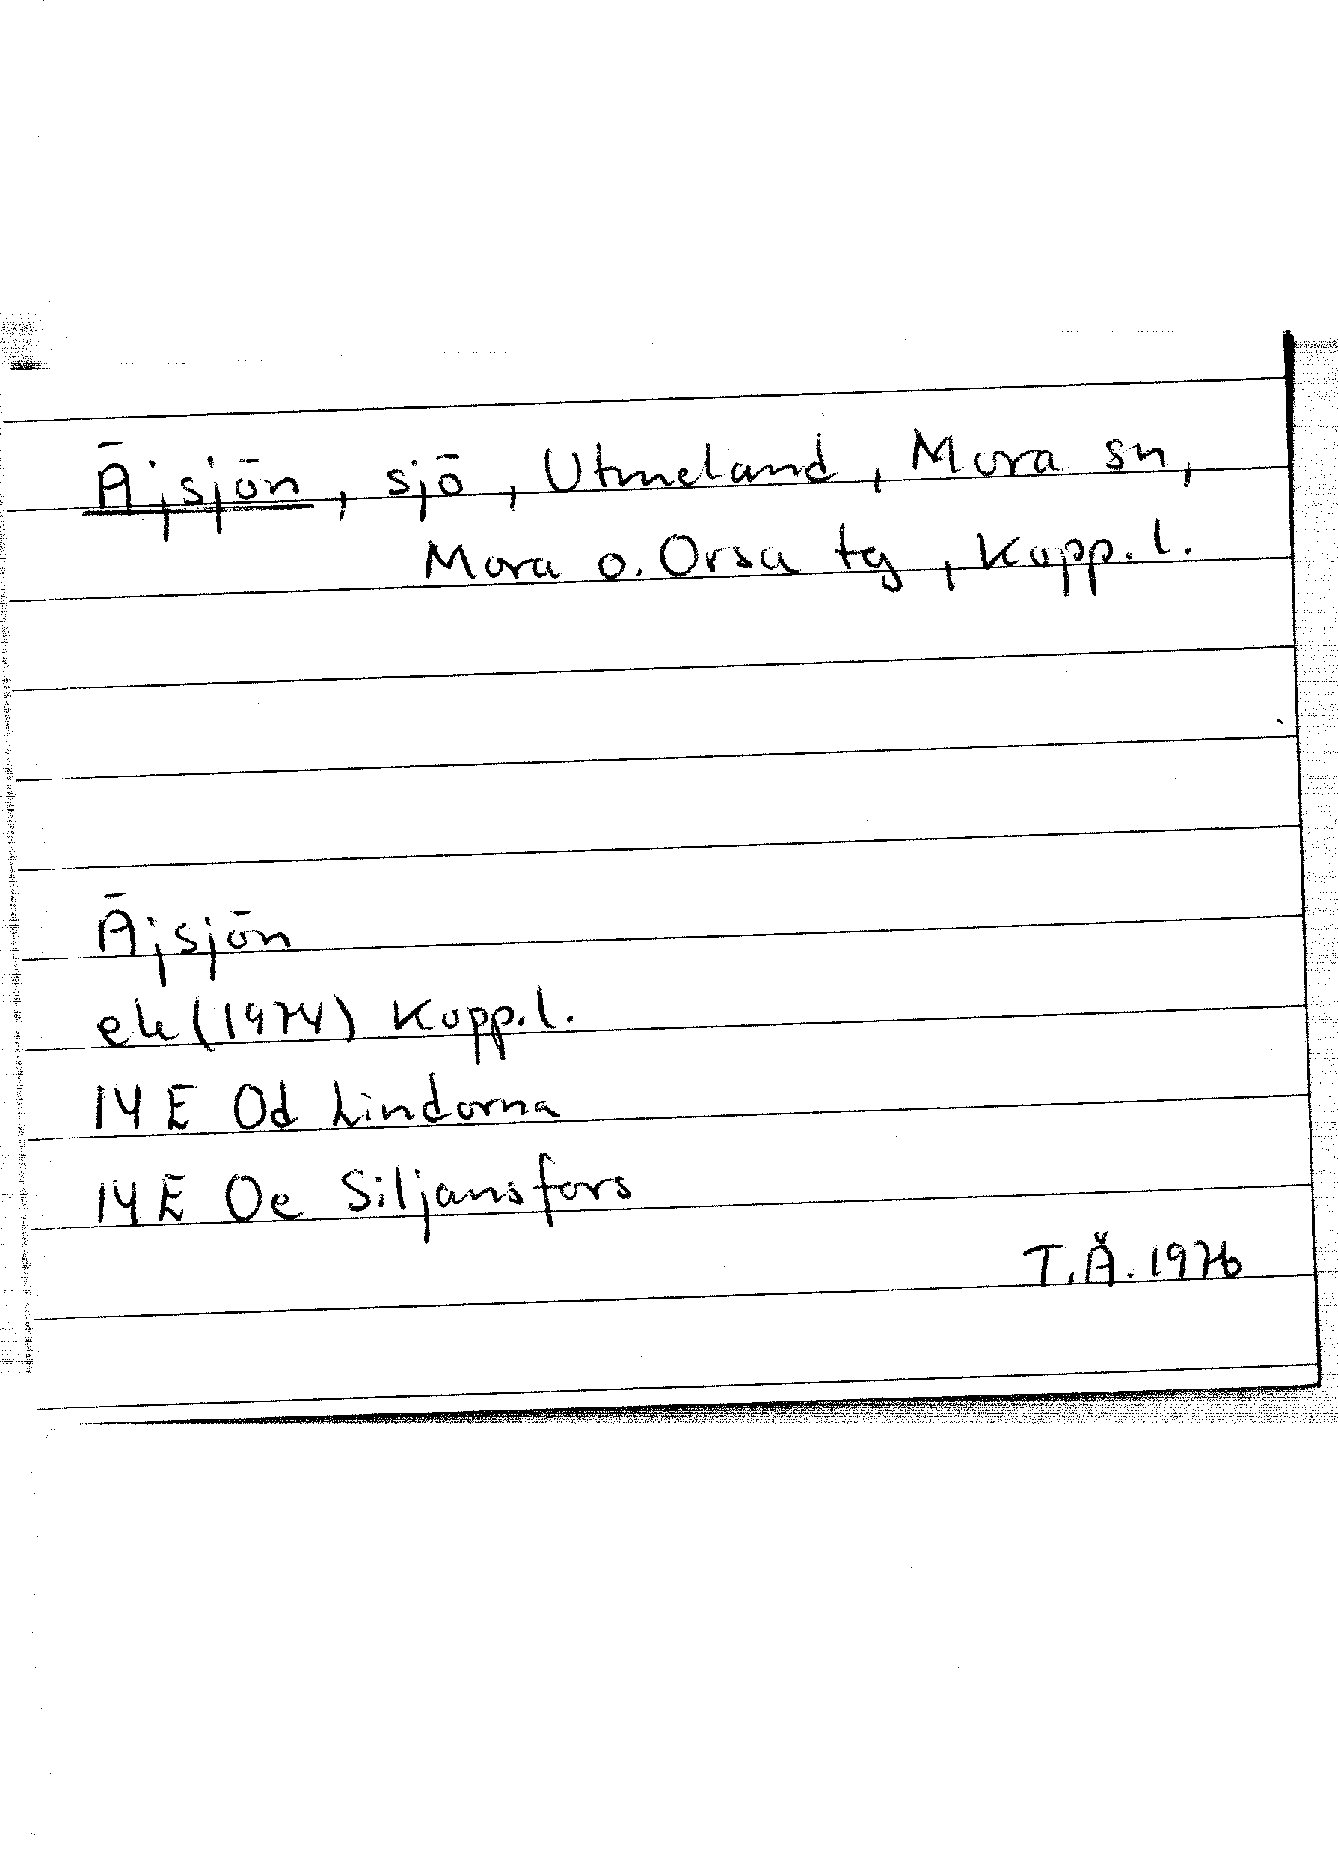 Äjsjön, sjö, Utmeland, Mora sn,
Mora o. Orsa tg, Kopp. l.
Äjsjön
ek (1974) Kopp. l.
14 E 0d Lindorna
14 E 0e Siljansfors
T.Å. 1976